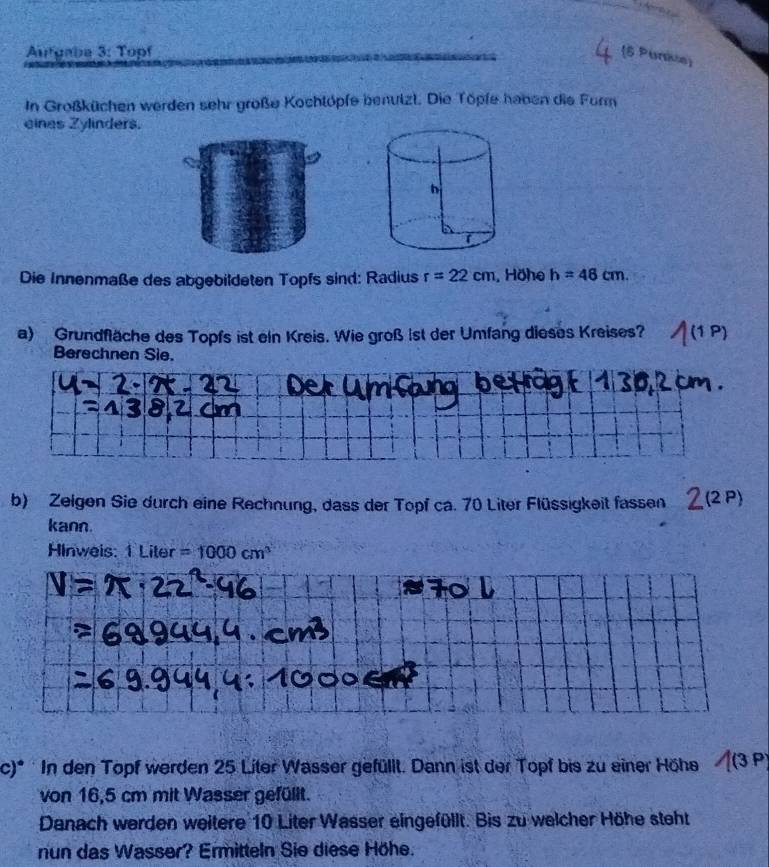 Aufgabe 3: Topf 4 (6 Punkte)
In Großküchen werden sehr große Kochtöpfe benutzt. Die Töpfe haben die Form
eines Zylinders.
h
r
Die Innenmaße des abgebildeten Topfs sind: Radius r = 22 cm, Höhe h = 46 cm.
a) Grundfläche des Topfs ist ein Kreis. Wie groß ist der Umfang dieses Kreises? 1 (1 P)
Berechnen Sie.
u = 2 · π · 22 Der Umfang beträgt 138,2 cm.
= 138,2 cm
b) Zeigen Sie durch eine Rechnung, dass der Topf ca. 70 Liter Flüssigkeit fassen 2 (2 P)
kann.
Hinweis: 1 Liter = 1000 cm³
V = π · 22² · 46 ≈ 70 L
= 69944,4 · cm³
= 69.944,4 : 1000
c)* In den Topf werden 25 Liter Wasser gefüllt. Dann ist der Topf bis zu einer Höhe 1 (3 P)
von 16,5 cm mit Wasser gefüllt.
Danach werden weitere 10 Liter Wasser eingefüllt. Bis zu welcher Höhe steht
nun das Wasser? Ermitteln Sie diese Höhe.